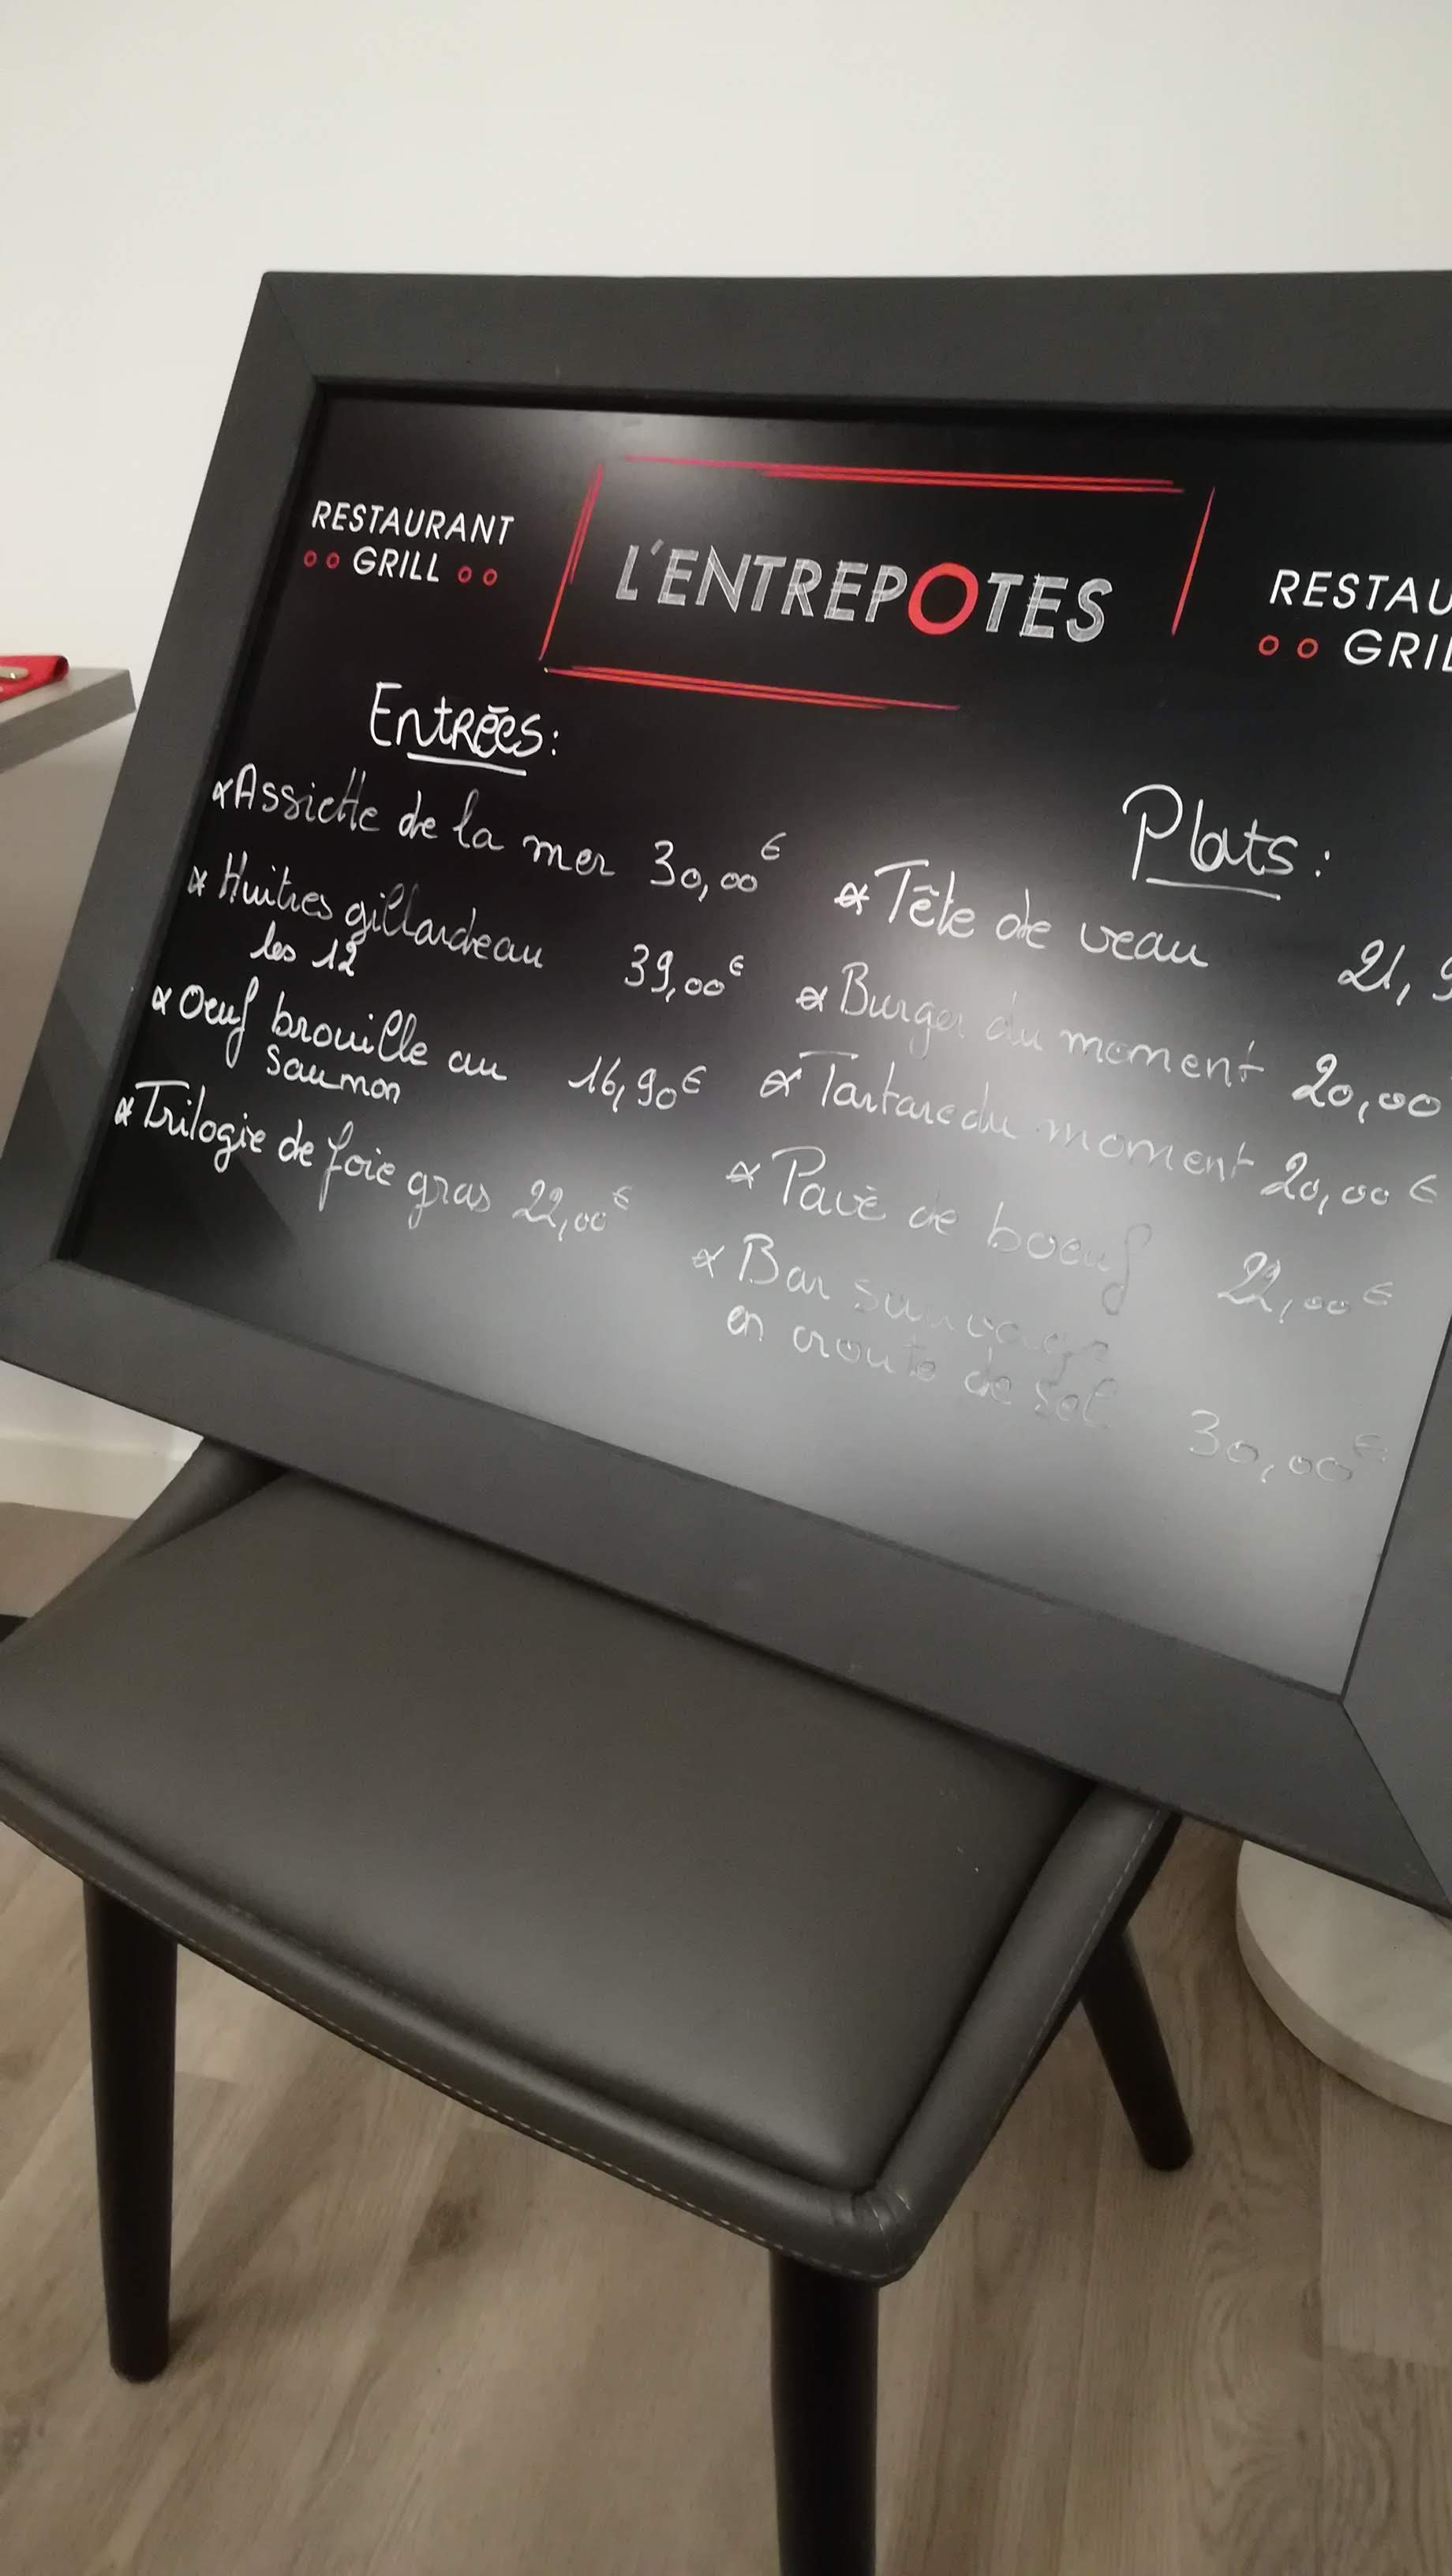 RESTAURANT
GRILL
L'ENTREPOTES
RESTAU
GRIL
Entrées:
Assiette de la mer 30,00€
Huitres gillardeau 39,00€
les 12
Oeuf brouille au 16,90€
saumon
Trilogie de foie gras 22,00€
Plats:
Tête de veau 21,9
Burger du moment 20,00
Tartare du moment 20,00€
Pavé de boeuf 22,00€
Bar sauvage
en croute de sel 30,00€